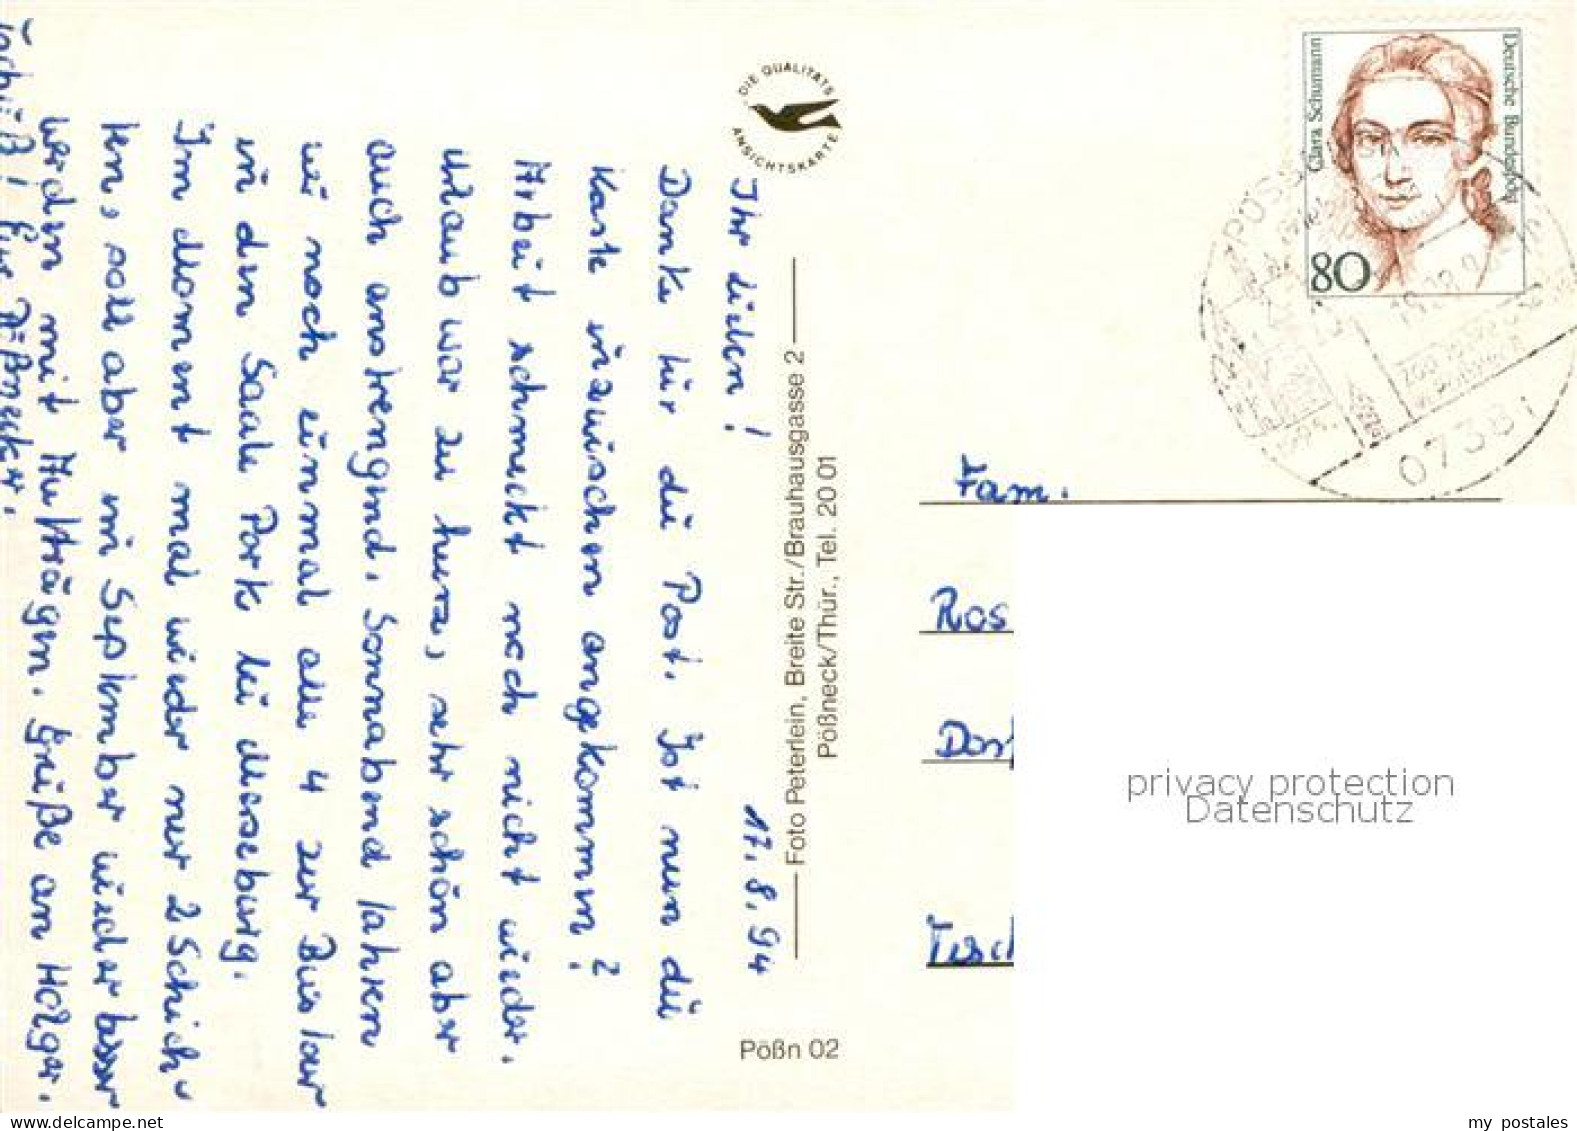 DIE QUALITÄTS
ANSICHTSKARTE
17.8.94
Ihr Lieben!
Danke für die Post. Ist nun die
Karte inzwischen angekommen?
Arbeit schmeckt noch nicht wieder.
Urlaub war zu kurz, sehr schön aber
auch anstrengend. Sonnabend fahren
wir noch einmal alle 4 zur Bus tour
in den Saale Park bei Merseburg.
Im Moment mal wieder nur 2 Schich-
ten, soll aber im September wieder besser
werden mit Aufträgen. Grüße an Holger.
Tschüß! Eure Pößnecker.
Foto Peterlein, Breite Str./Brauhausgasse 2
Pößneck/Thür., Tel. 20 01
Pößn 02
Clara Schumann
Deutsche Bundespost
80
07381
Fam.
Ros
Dorf
Tisch
privacy protection
Datenschutz
my postales